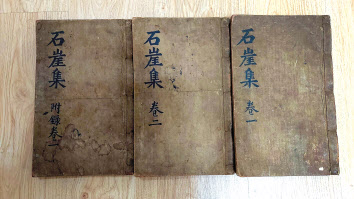 石崖集 卷一
石崖集 卷二
石崖集 附錄卷二